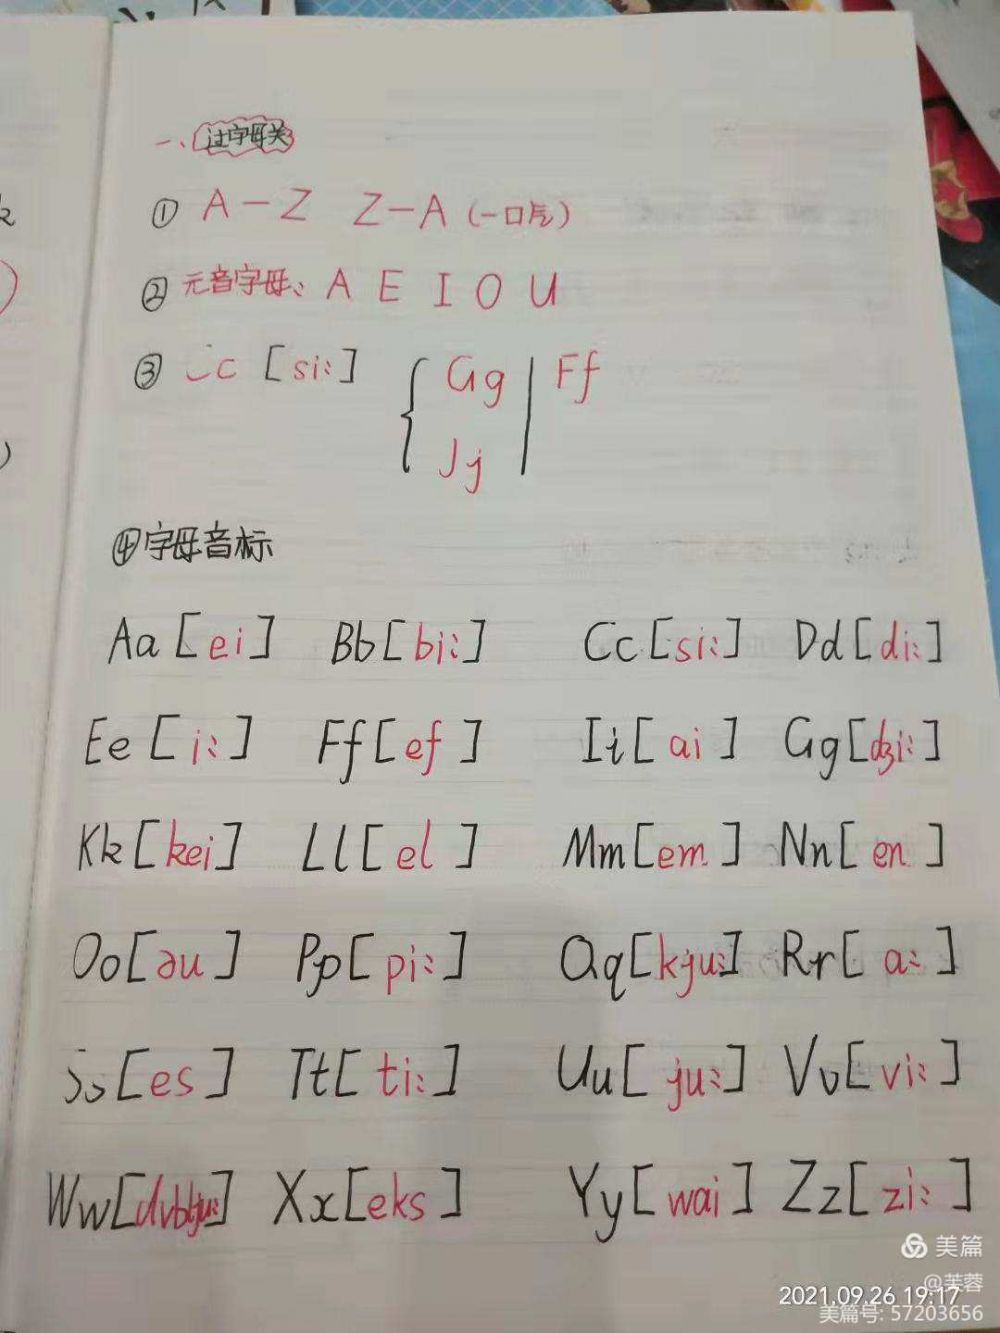 一、过字母关
① A－Z Z－A (一口气)
② 元音字母、A E I O U
③ Cc [si:] { Gg | Ff
Jj
④ 字母音标
Aa [ei] Bb [bi:] Cc [si:] Dd [di:]
Ee [i:] Ff [ef] Ii [ai] Gg [dʒi:]
Kk [kei] Ll [el] Mm [em] Nn [en]
Oo [əu] Pp [pi:] Qq [kju:] Rr [a:]
Ss [es] Tt [ti:] Uu [ju:] Vv [vi:]
Ww Xx [eks] Yy [wai] Zz [zi:]
美篇
@芙蓉
2021.09.26 19:17
美篇号: 57203656